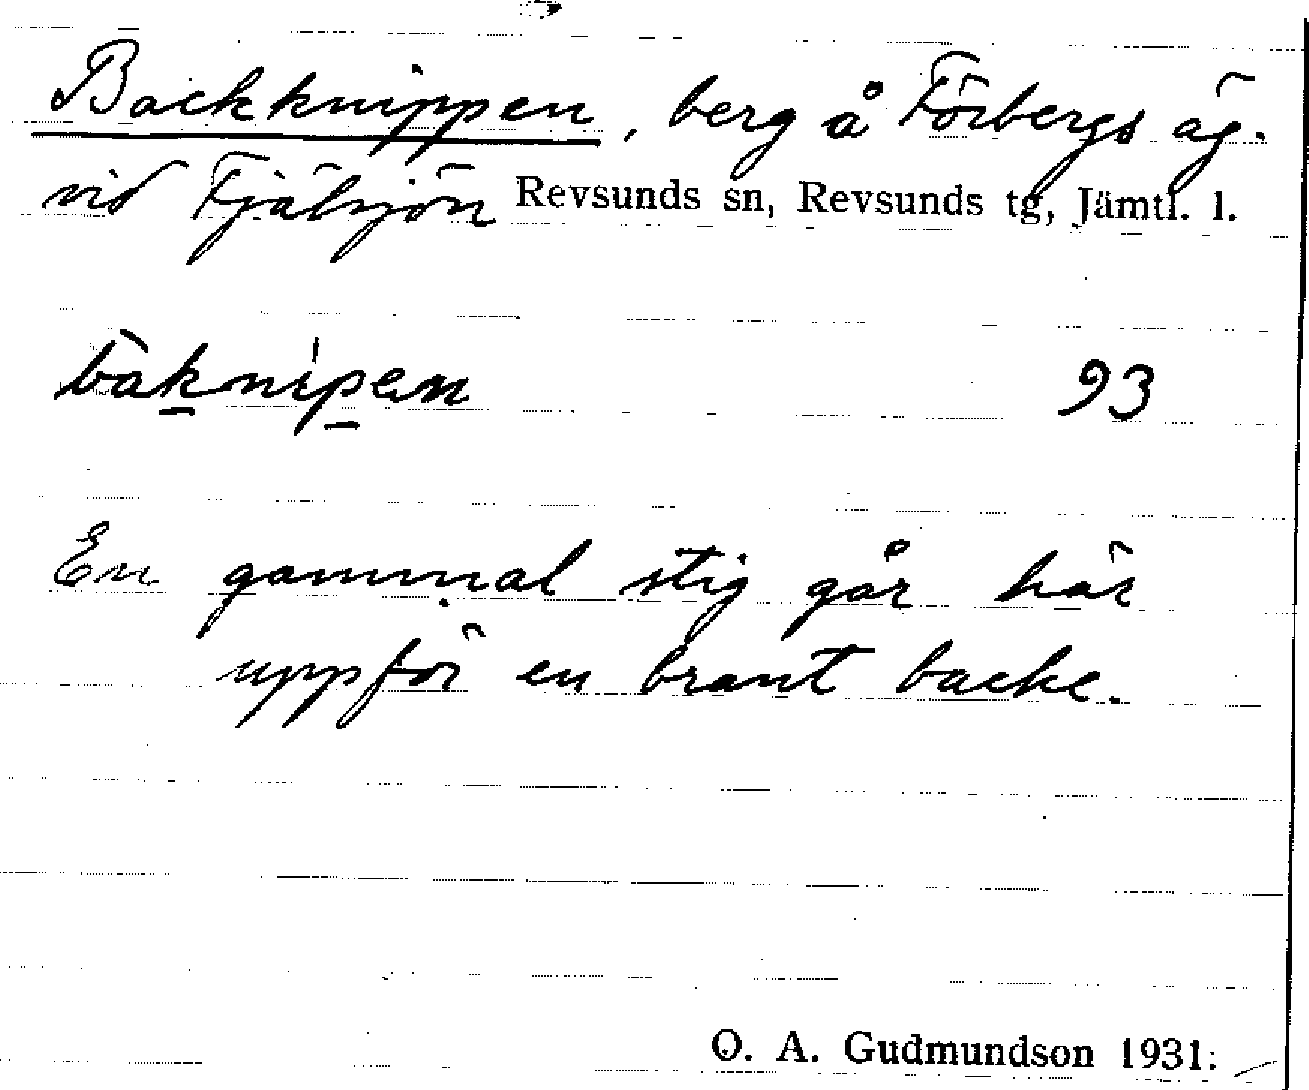 Backknippen, berg å Förbergs äg.
vid Fjälsjön Revsunds sn, Revsunds tg, Jämtl. l.
bàknìpen 93
En gammal stig går här
uppför en brant backe.
O. A. Gudmundson 1931.